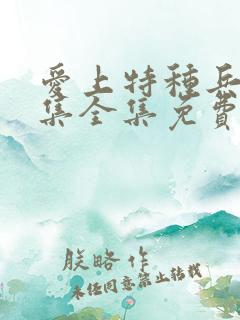 愛上特種兵
集全集免費
朕略作
未經同意禁止轉載